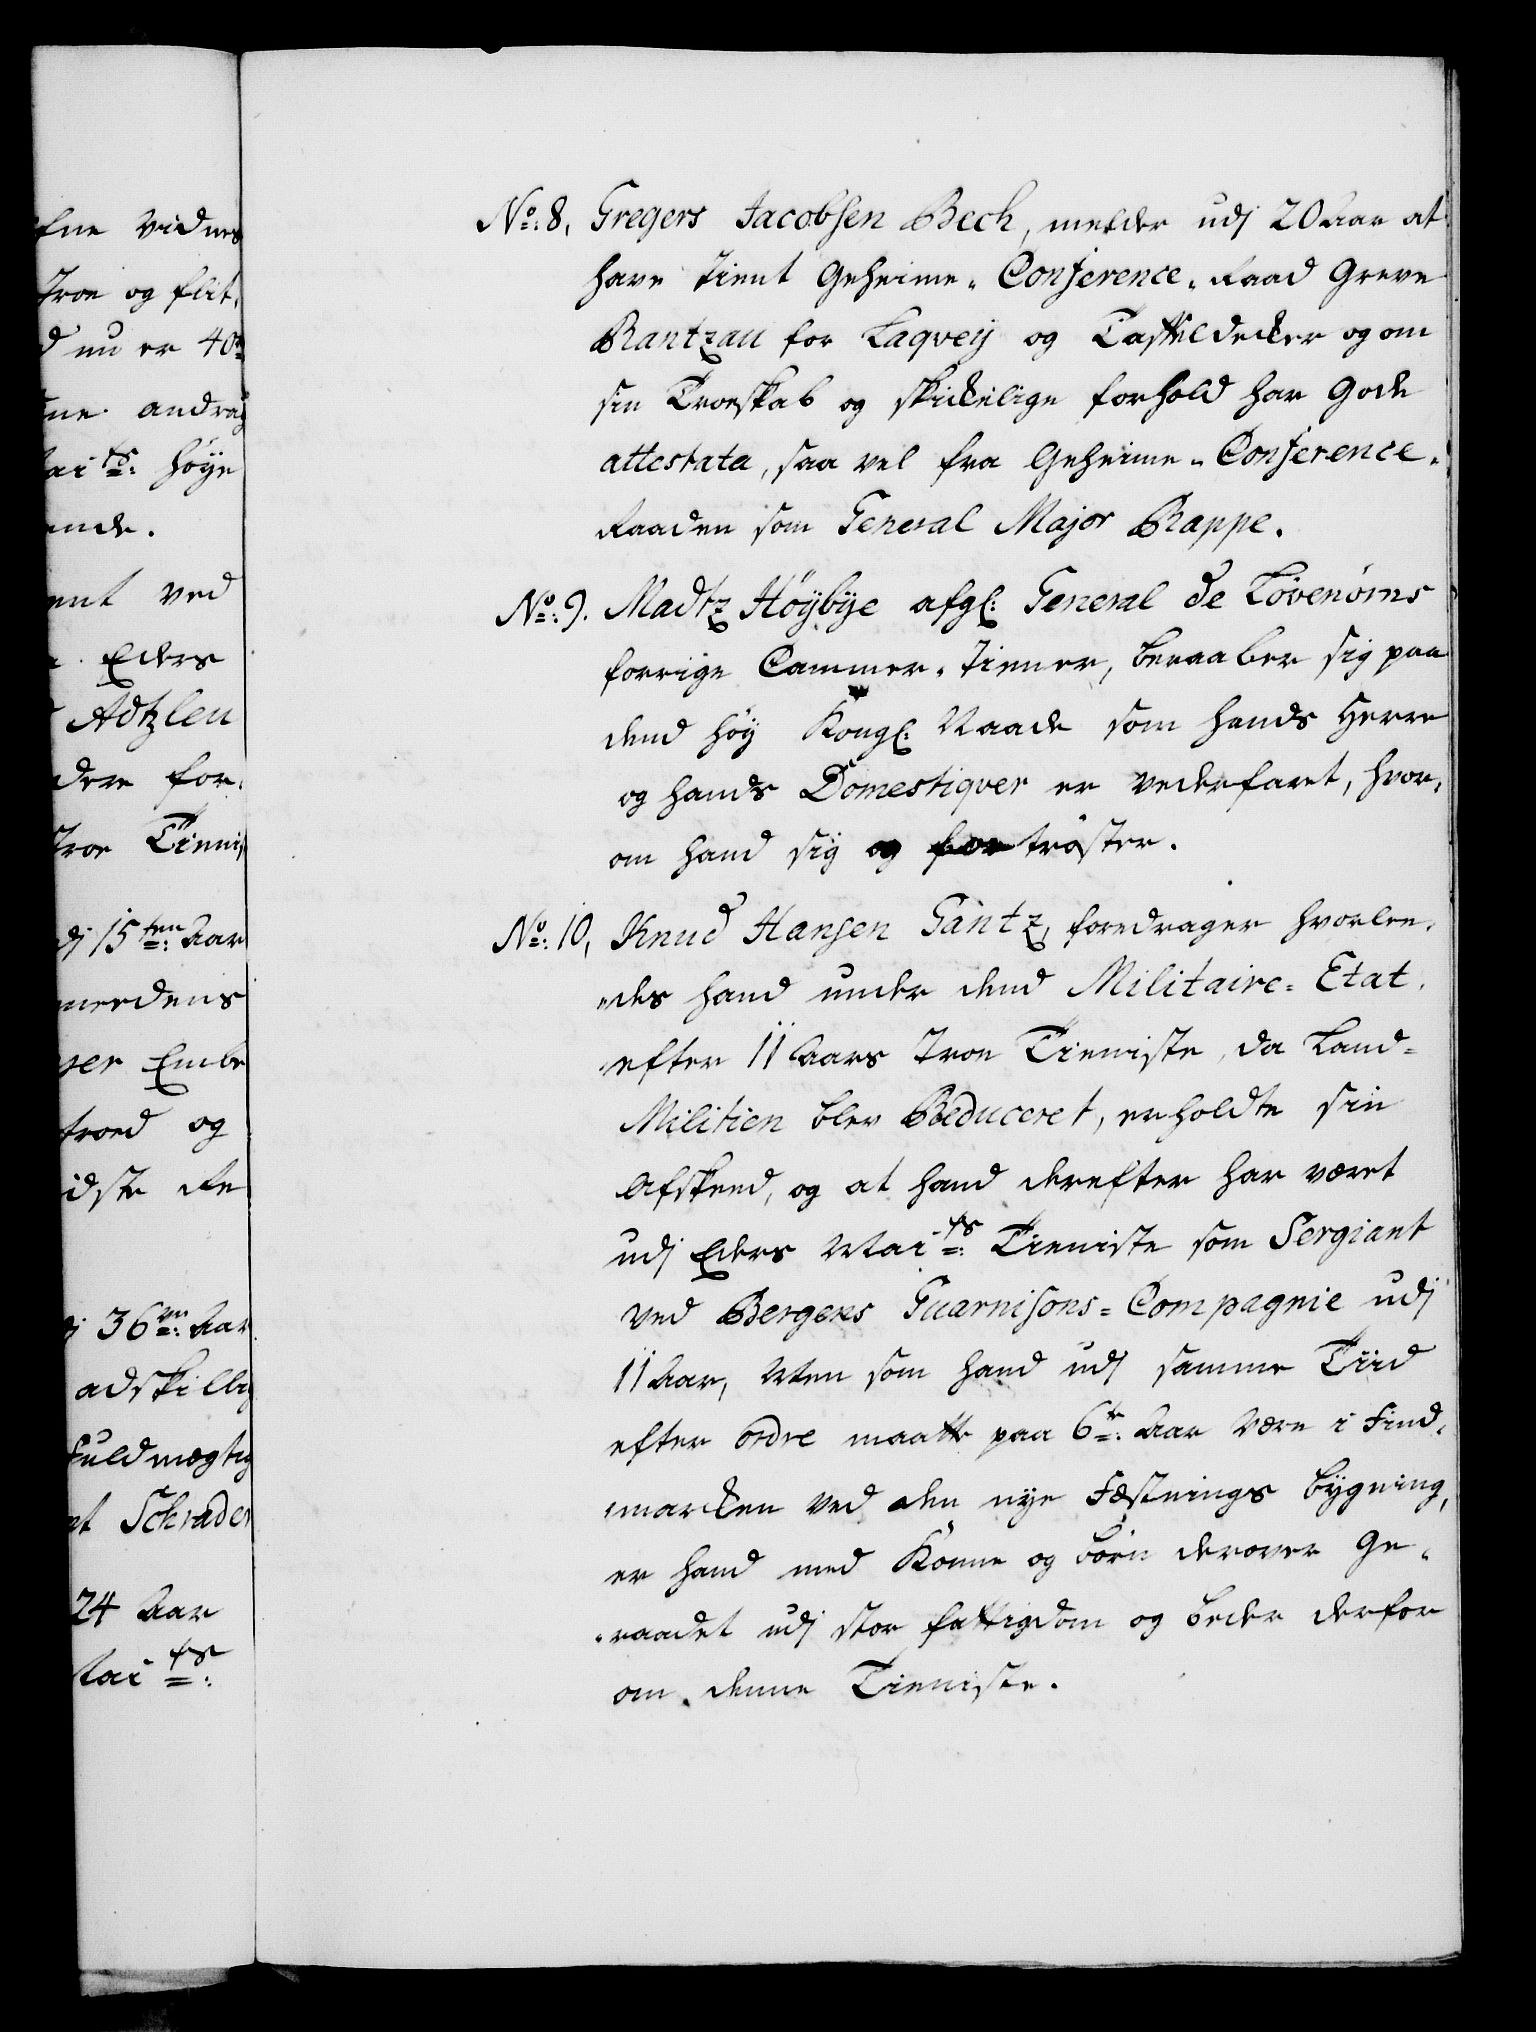 fne vidnes
Troe og flit,
d nu er 40
ne andrag
ai ts: høye
ende.
ent ved
Eders
Adtzleu
dere for-
Troe Tienis
dj 15 ten: Aar
meedens
ger Embe
troed og
idste Re
j 36 ve: Aar
adskillig
Fuldmægtig
et Schrader
24 Aar
Mai ts:
No: 8, Gregers Jacobsen Bech, melder udj 20 Aar at
have tient Geheime-Conference-Raad Greve
Rantzau for Laqvey og Taffeldecker og om
sin Troeskab og skickelige forhold har gode
attestata, saa vel fra Geheime-Conference-
Raaden som General Major Rappe.
No: 9. Madtz Høybye afgl: General de Løvenørns
forrige Cammer-Tiener, beraaber sig paa
dend høy Kongl: Naade som hands Herre
og hands Domestiqver er vederfaret, hvor-
om hand sig og trøster.
No: 10, Knud Hansen Gantz, foredrager hvorlee-
des hand under dend Militaire-Etat,
efter 11 Aars troe Tieniste, da Land-
Militien blev Reduceret, erholdte sin
Afskeed, og at hand derefter har været
udj Eders Mai ts: Tieniste som Sergiant
ved Bergens Guarnisons-Compagnie udj
11 Aar, Men som hand udj samme Tiid
efter ordre maatte paa 6 te: Aar være i Find-
marcken ved den nye Fæstnings bygning,
er hand med Konne og børn derover Ge-
raadet udj stor fattigdom og beder derfor
om denne Tieniste.